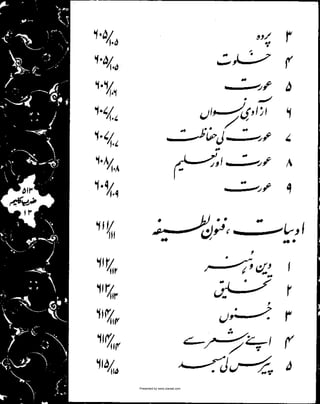 ۳ پردہ ۶۰۵/۱۰۵
۴ خلوت ۶۰۵/۱۰۵
۵ عورت ۶۰۶/۱۰۶
۶ آزادیِ نسواں ۶۰۷/۱۰۷
۷ عورت کی حفاظت ۶۰۷/۱۰۷
۸ عورت اور تعلیم ۶۰۸/۱۰۸
۹ عورت ۶۰۹/۱۰۹
ادبیات، فنونِ لطیفہ ۶۱۱/۱۱۱
۱ دین و ہنر ۶۱۲/۱۱۲
۲ تخلیق ۶۱۳/۱۱۳
۳ جنوں ۶۱۴/۱۱۴
۴ اپنے شعر سے ۶۱۴/۱۱۴
۵ پیرس کی مسجد ۶۱۵/۱۱۵
۵۱۳
ضربِ کلیم
۱۳
Presented by www.ziaraat.com